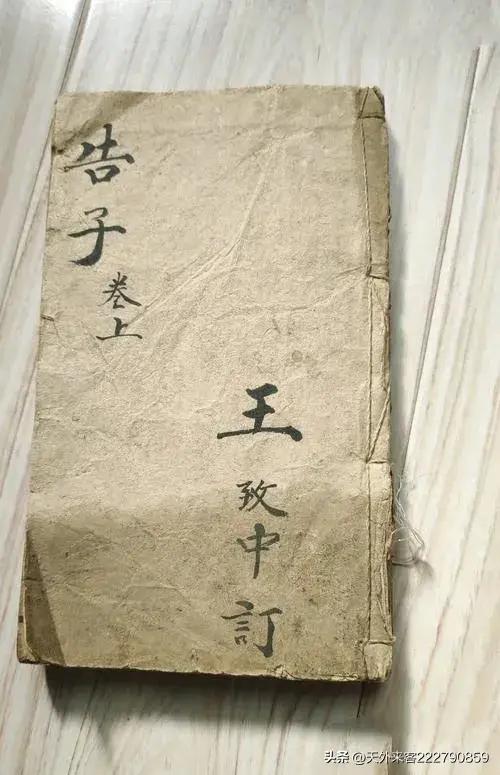 告子
卷上
王致中訂
头条 @天外来客222790859